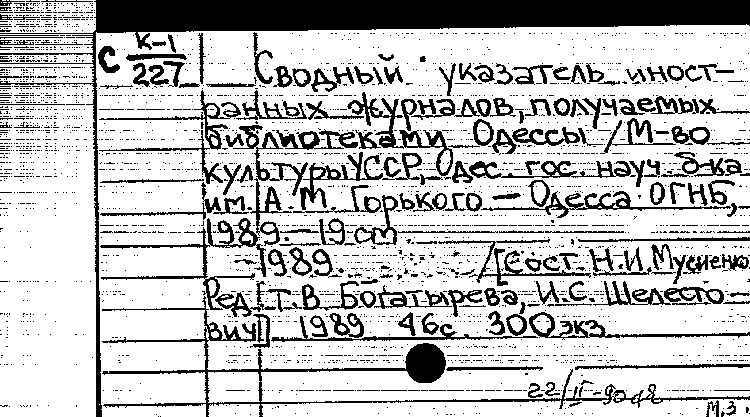 С К-1/227
Сводный указатель иност-
ранных журналов, получаемых
библиотеками Одессы / М-во
культуры УССР, Одес. гос. науч. б-ка
им. А. М. Горького — Одесса: ОГНБ,
1989. — 19 cm.
-1989. /[Сост. Н.И. Мусиенко
Ред. Т. В. Богатырева, И.С. Шелесто-
вич] 1989 46с. 300 экз
22/II-90
М.З.